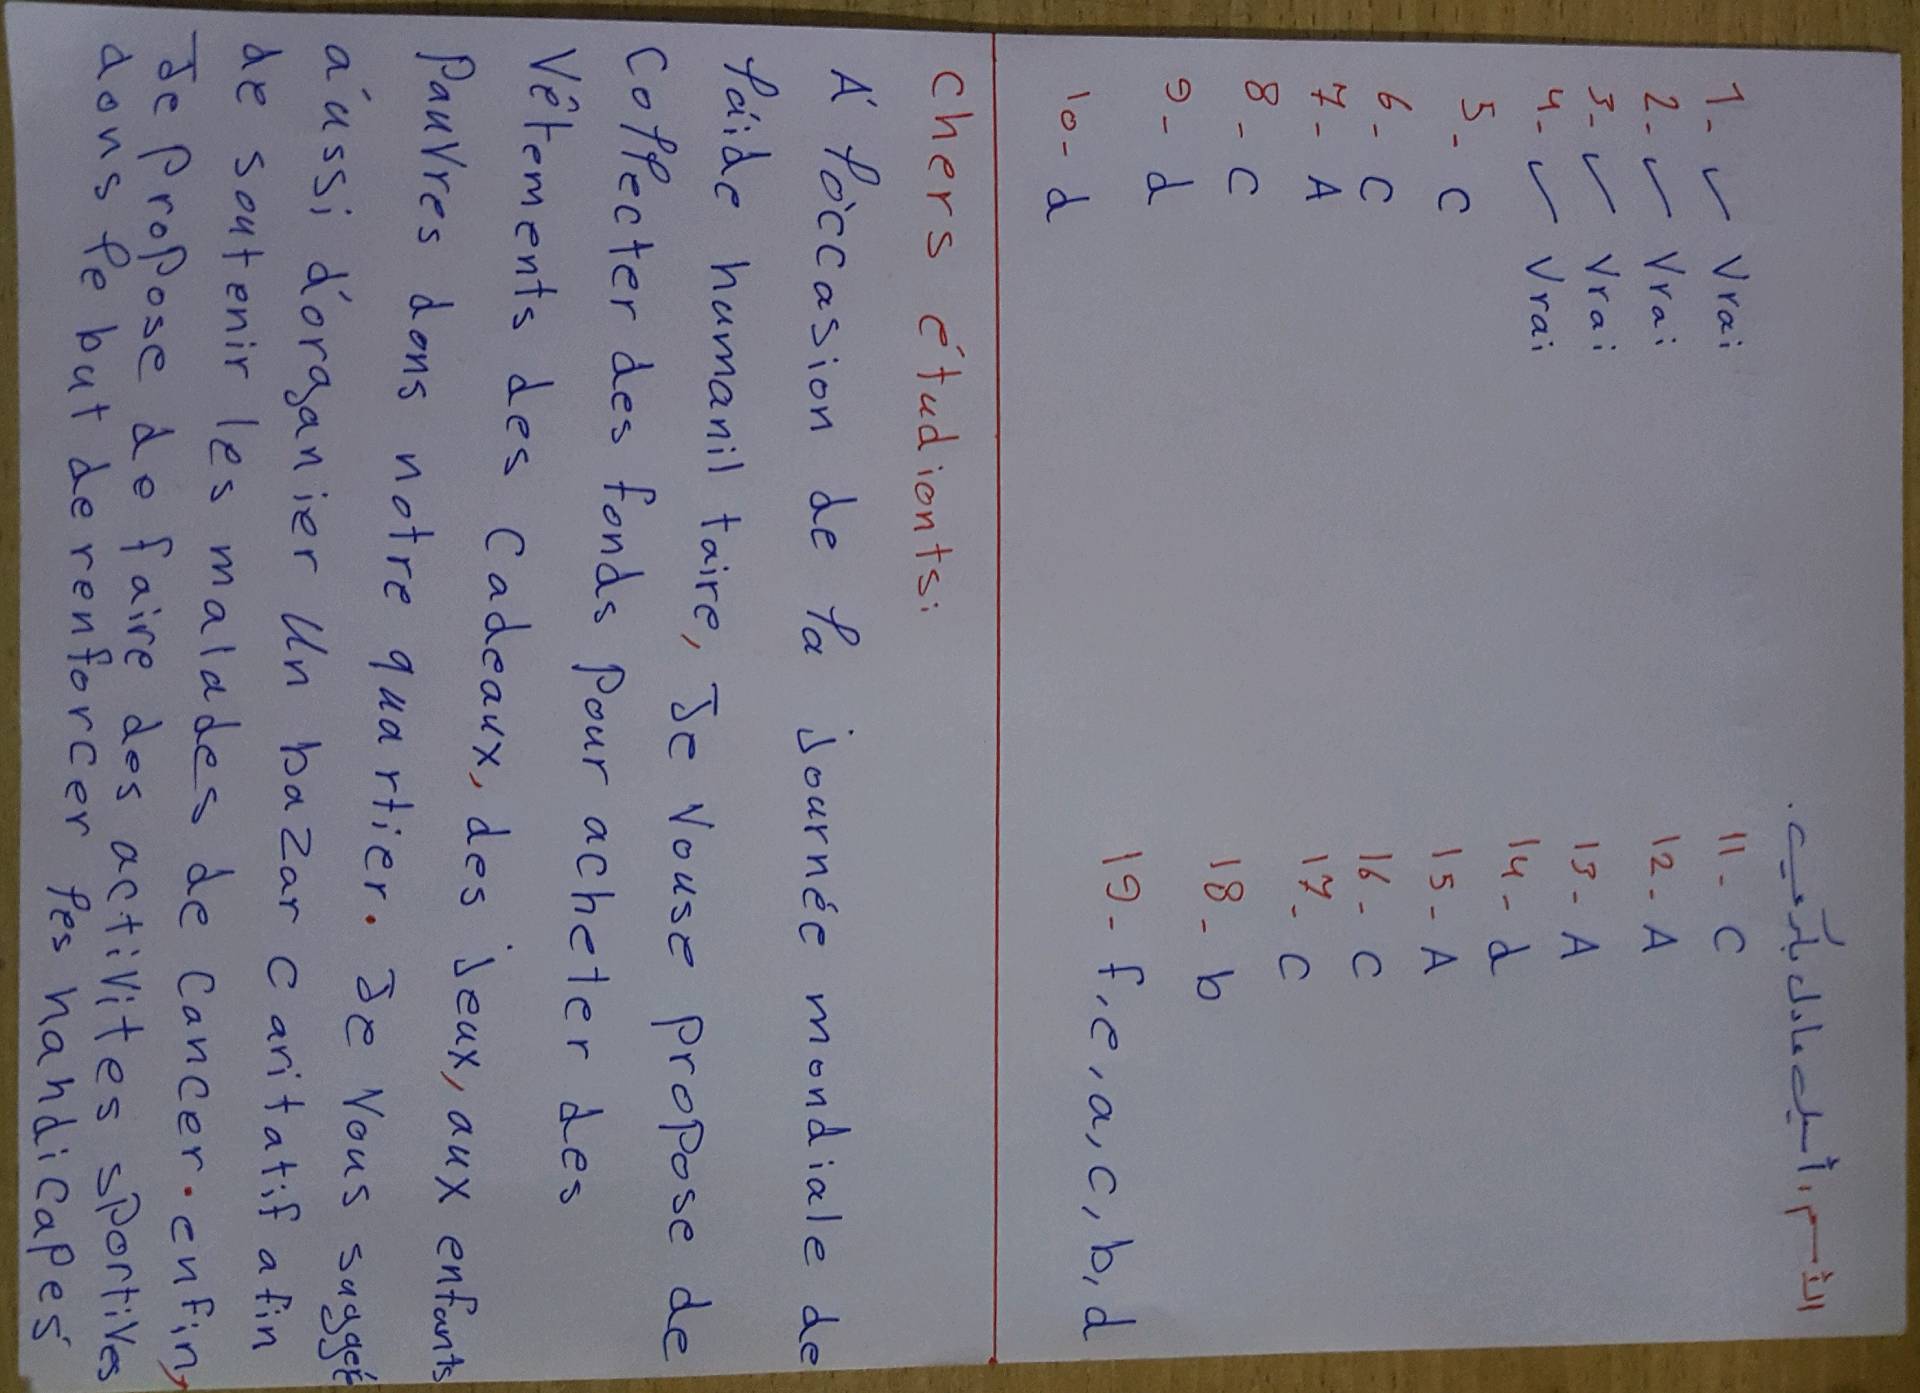 الاسم: أسيل عادل
1- ✓ Vrai
2- ✓ Vrai
3- ✓ Vrai
4- ✓ Vrai
5- C
6- C
7- A
8- C
9- d
10- d
11- C
12- A
13- A
14- d
15- A
16- C
17- C
18- b
19- f, e, a, c, b, d
Chers étudionts:
Á l'occasion de la journée mondiale de
l'aide humanil taire, Je Vouse propose de
Collecter des fonds pour acheter des
Vêtements des Cadeaux, des jeux, aux enfants
Pauvres dons notre quartier. Je Vous suggée
a'ussi d'oraganier Un bazar caritatif afin
de soutenir les malades de Cancer. enfin,
Je propose de faire des activites sportives
dons le but de renforcer les handicapes